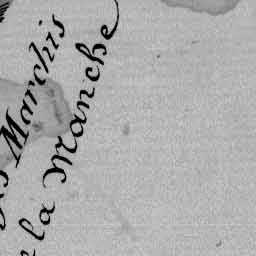 Marchis
la Manche